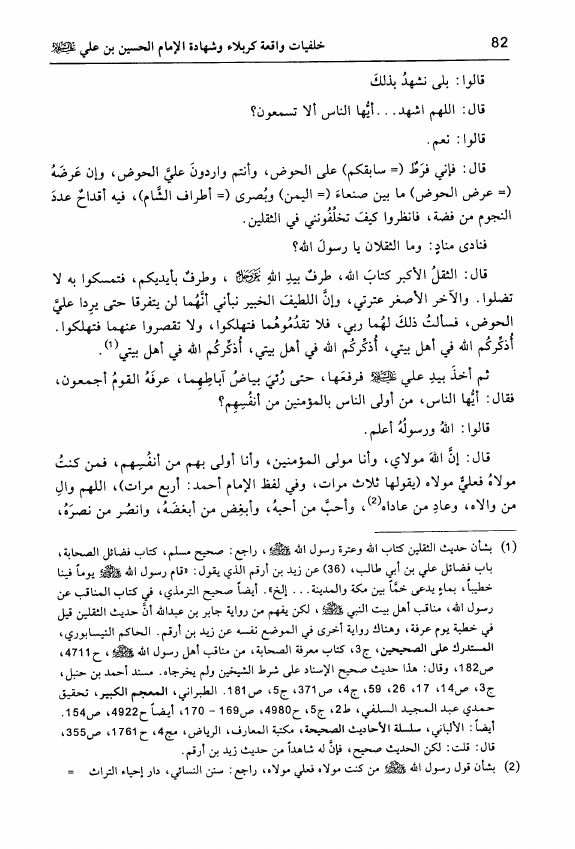 82 خلفيات واقعة كربلاء وشهادة الإمام الحسين بن علي ﵇
قالوا: بلى نشهدُ بذلكَ
قال: اللهم اشهد... أيُّها الناس ألا تسمعون؟
قالوا: نعم.
قال: فإني فَرَطٌ (= سابقكم) على الحوض، وأنتم واردونَ عليَّ الحوض، وإن عَرضَهُ
(= عرض الحوض) ما بين صنعاءَ (= اليمن) وبُصرى (= أطراف الشَّام)، فيه أقداحٌ عددَ
النجوم من فضة، فانظروا كيفَ تخلُفُونني في الثقلين.
فنادى منادٍ: وما الثقلان يا رسولَ الله؟
قال: الثقلُ الأكبر كتابَ الله، طرفٌ بيدِ اللهِ ﷿، وطرفٌ بأيديكم، فتمسكوا به لا
تضلوا. والآخر الأصغر عترتي، وإنَّ اللطيفَ الخبير نبأني أنَّهُما لن يتفرقا حتى يرِدا عليَّ
الحوض، فسألتُ ذلكَ لهُما ربي، فلا تقدُمُوهُما فتهلكوا، ولا تقصروا عنهما فتهلكوا.
أُذكّركُم الله في أهل بيتي، أُذكّركُم الله في أهل بيتي، أُذكّركُم الله في أهل بيتي(1).
ثم أخذَ بيدِ علي ﵇ فرفعَها، حتى رُئيَ بياضُ آباطِهِما، عرفَهُ القومُ أجمعون،
فقال: أيُّها الناس، من أولى الناس بالمؤمنين من أنفُسِهِم؟
قالوا: اللهُ ورسولُهُ أعلم.
قال: إنَّ اللهَ مولاي، وأنا مولى المؤمنين، وأنا أولى بهم من أنفُسِهِم، فمن كنتُ
مولاهُ فعليٌّ مولاه (يقولها ثلاث مرات، وفي لفظ الإمام أحمد: أربع مرات)، اللهم والِ
من والاه، وعادِ من عاداه(2)، وأحبَّ من أحبهُ، وأبغِض من أبغضَهُ، وانصُر من نصرَهُ،
(1) بشأن حديث الثقلين كتاب الله وعترة رسول الله ﷺ، راجع: صحيح مسلم، كتاب فضائل الصحابة،
باب فضائل علي بن أبي طالب، (36) عن زيد بن أرقم الذي يقول: «قام رسول الله ﷺ يوماً فينا
خطيباً، بماءٍ يدعى خمّاً بين مكة والمدينة... إلخ». أيضاً صحيح الترمذي، في كتاب المناقب عن
رسول الله، مناقب أهل بيت النبي ﷺ، لكن يفهم من رواية جابر بن عبدالله أنَّ حديث الثقلين قيل
في خطبة يوم عرفة، وهناك رواية أخرى في الموضع نفسه عن زيد بن أرقم. الحاكم النيسابوري،
المستدرك على الصحيحين، ج3، كتاب معرفة الصحابة، من مناقب أهل رسول الله ﷺ، ح4711،
ص182، وقال: هذا حديث صحيح الإسناد على شرط الشيخين ولم يخرجاه. مسند أحمد بن حنبل،
ج3، ص14، 17، 26، 59، ج4، ص371، ج5، ص181. الطبراني، المعجم الكبير، تحقيق
حمدي عبد المجيد السلفي، ط2، ج5، ح4980، ص169 - 170، أيضاً ح4922، ص154.
أيضاً: الألباني، سلسلة الأحاديث الصحيحة، مكتبة المعارف، الرياض، مج4، ح1761، ص355،
قال: قلت: لكن الحديث صحيح، فإنَّ له شاهداً من حديث زيد بن أرقم.
(2) بشأن قول رسول الله ﷺ من كنت مولاه فعلي مولاه، راجع: سنن النسائي، دار إحياء التراث =